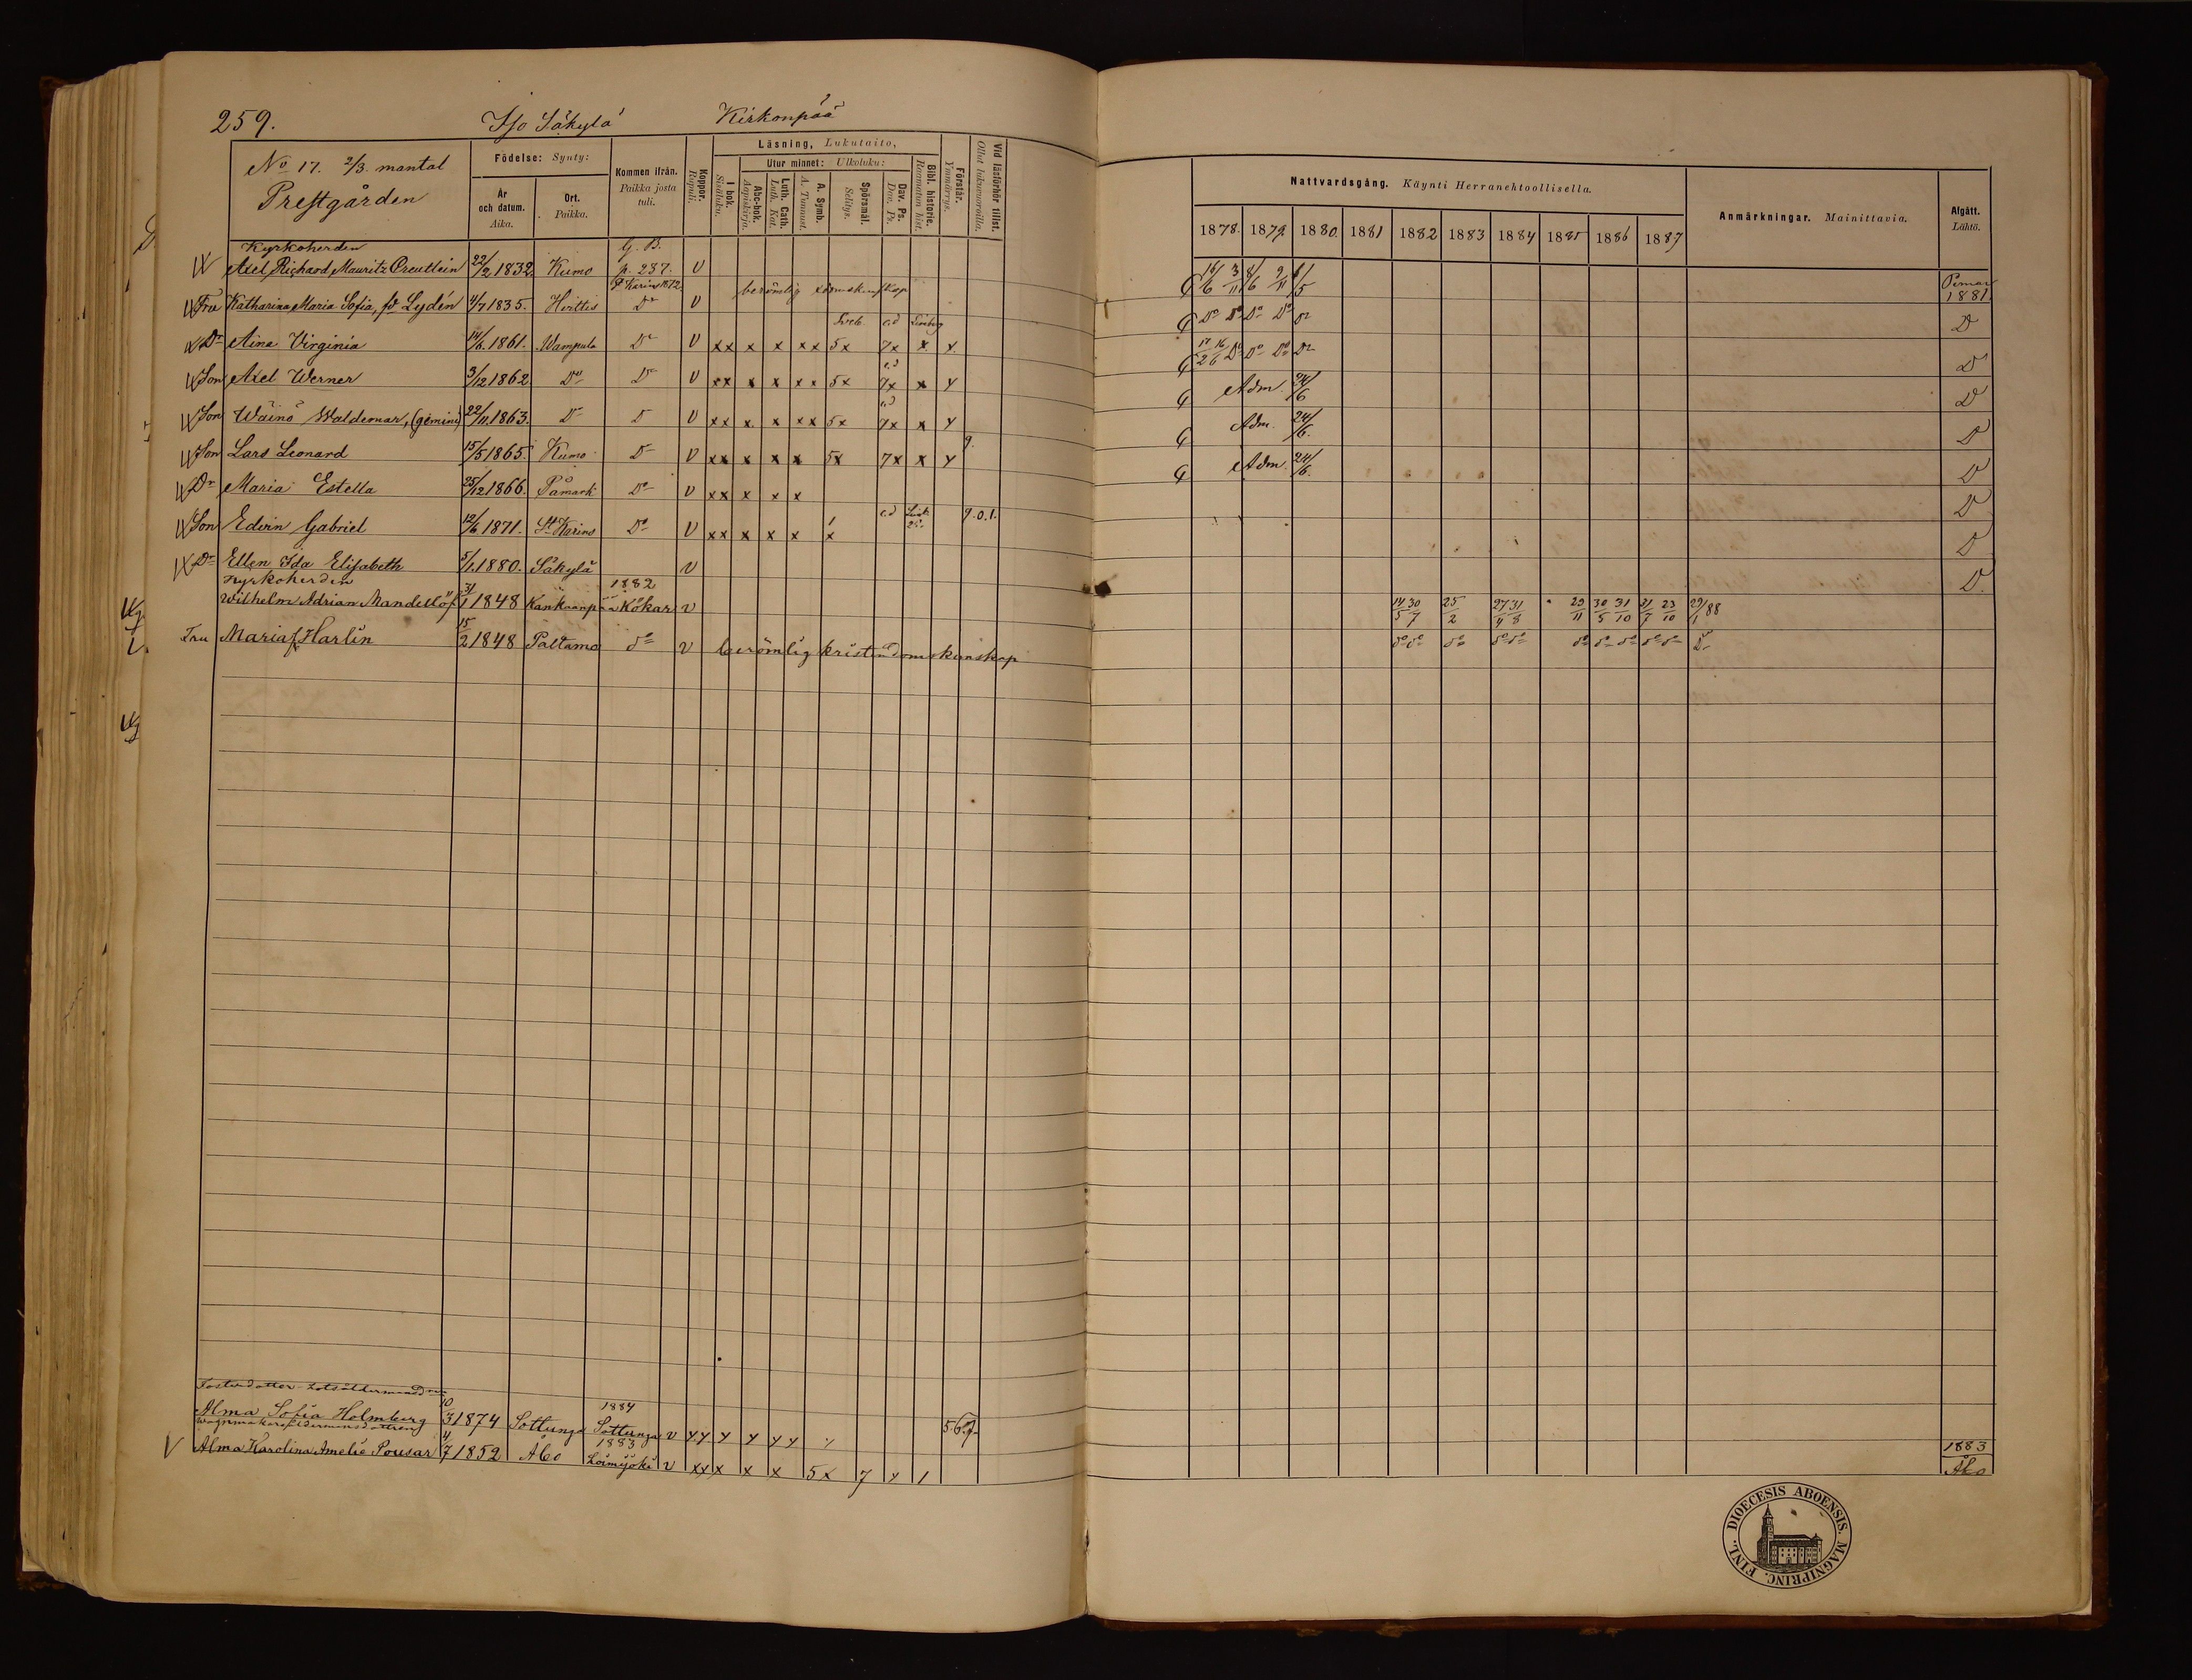 259. Iso Säkylä Kirkonpää
No 17. 2/3. mantal
Prestgården
Födelse: Synty:
År och datum. Aika.
Ort. Paikka.
Kommen ifrån. Paikka josta tuli.
Koppor. Rupuli.
Läsning, Lukutaito,
I bok. Sisäluku.
Utur minnet: Ulkoluku:
Abc-bok. Aapiskirja.
Luth. Cath. Luth. Kat.
A. Symb. A. Tunnust.
Spörsmål. Selitys.
Dav. Ps. Dav. Ps.
Bibl. historie. Raamatun hist.
Förstår. Ymmärrys.
Vid läsförhör tillst. Ollut lukuvuoroilla.
Nattvardsgång. Käynti Herranehtoollisella.
1878. 1879. 1880. 1881 1882 1883 1884 1885 1886 1887
Anmärkningar. Mainittavia.
Afgått. Lähtö.
Kyrkoherden G. B.
Axel Richard Mauritz Creutlein 22/2 1832. Kumo p. 237. V Pemar 1881.
St Karins 1872.
Fru Katharina Maria Sofia, fd Lydén 4/7 1835. Hvittis Do V berömlig D
Dr Aina Virginia 14/6. 1861. Wampula Do V xx x x xx 5x 7x x x D
Son Axel Werner 3/12 1862 Do D V xx x x xx 5x 7x x x Adm. 24/6 D
Son Wäinö Waldemar, (gemini) 22/11. 1863. D D V xx x x xx 5x 7x x x Adm. 24/6. D
Son Lars Leonard 15/5 1865. Kumo D V xx x x x 5x 7x x x 9. Adm. 24/6. D
Dr Maria Estella 25/12 1866. Påmark Do V xx x x x D
Son Edvin Gabriel 12/6 1871. St Karins Do V xx x x x x 9.0.1. D
Dr Ellen Ida Elisabeth 5/1. 1880. Säkylä V D.
Kyrkoherden 1882
Wilhelm Adrian Mandellöf 31/1 1848 Kankaanpää Kökar v 14/5 30/7 25/2 27/4 31/8 29/11 30/5 31/10 31/7 23/10 29/1 88
Fru Maria f. Harlin 15/2 1848 Paltamo do v berömlig kristendomskunskap
Fosterdotter
Alma Sofia Holmberg 10/3 1874 Sottunga 1884 Sottunga v xx x x xx x 5.6.7.
Alma Karolina Amelie Pousar 4/7 1852 Åbo 1883 Loimijoki v xx x x x 5x 7 x 1 1883 Åbo
DIOECESIS ABOENSIS. MAGNIPRINC. FINL.